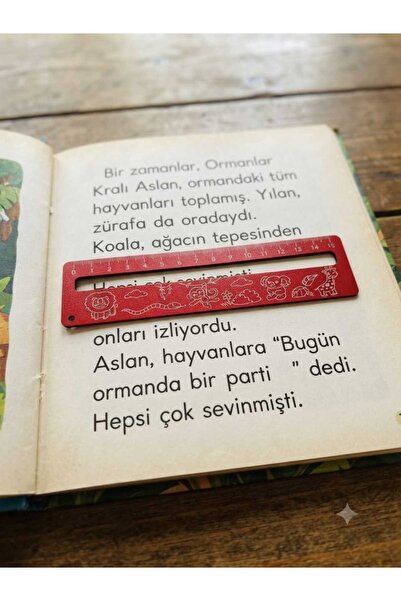 Bir zamanlar, Ormanlar
Kralı Aslan, ormandaki tüm
hayvanları toplamış. Yılan,
zürafa da oradaydı.
Koala, ağacın tepesinden
0 1 2 3 4 5 6 7 8 9 10 11 12 13 14 15
Hepsi çok sevinmişti
onları izliyordu.
Aslan, hayvanlara “Bugün
ormanda bir parti ” dedi.
Hepsi çok sevinmişti.